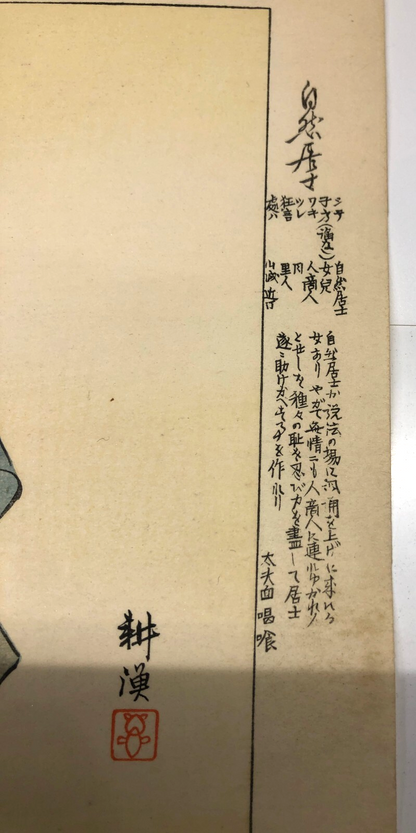 自然居士
シテ 自然居士
子方 女児
ワキ 人商人
ツレ 同
狂言 里人
処ハ
自然居士が説法の場に諷誦を上げに来れる
女あり やがて無情にも人商人に連れゆかれ
とせしを種々の恥を忍び力を尽して居士
遂に助けかへせる事を作れり
耕漁